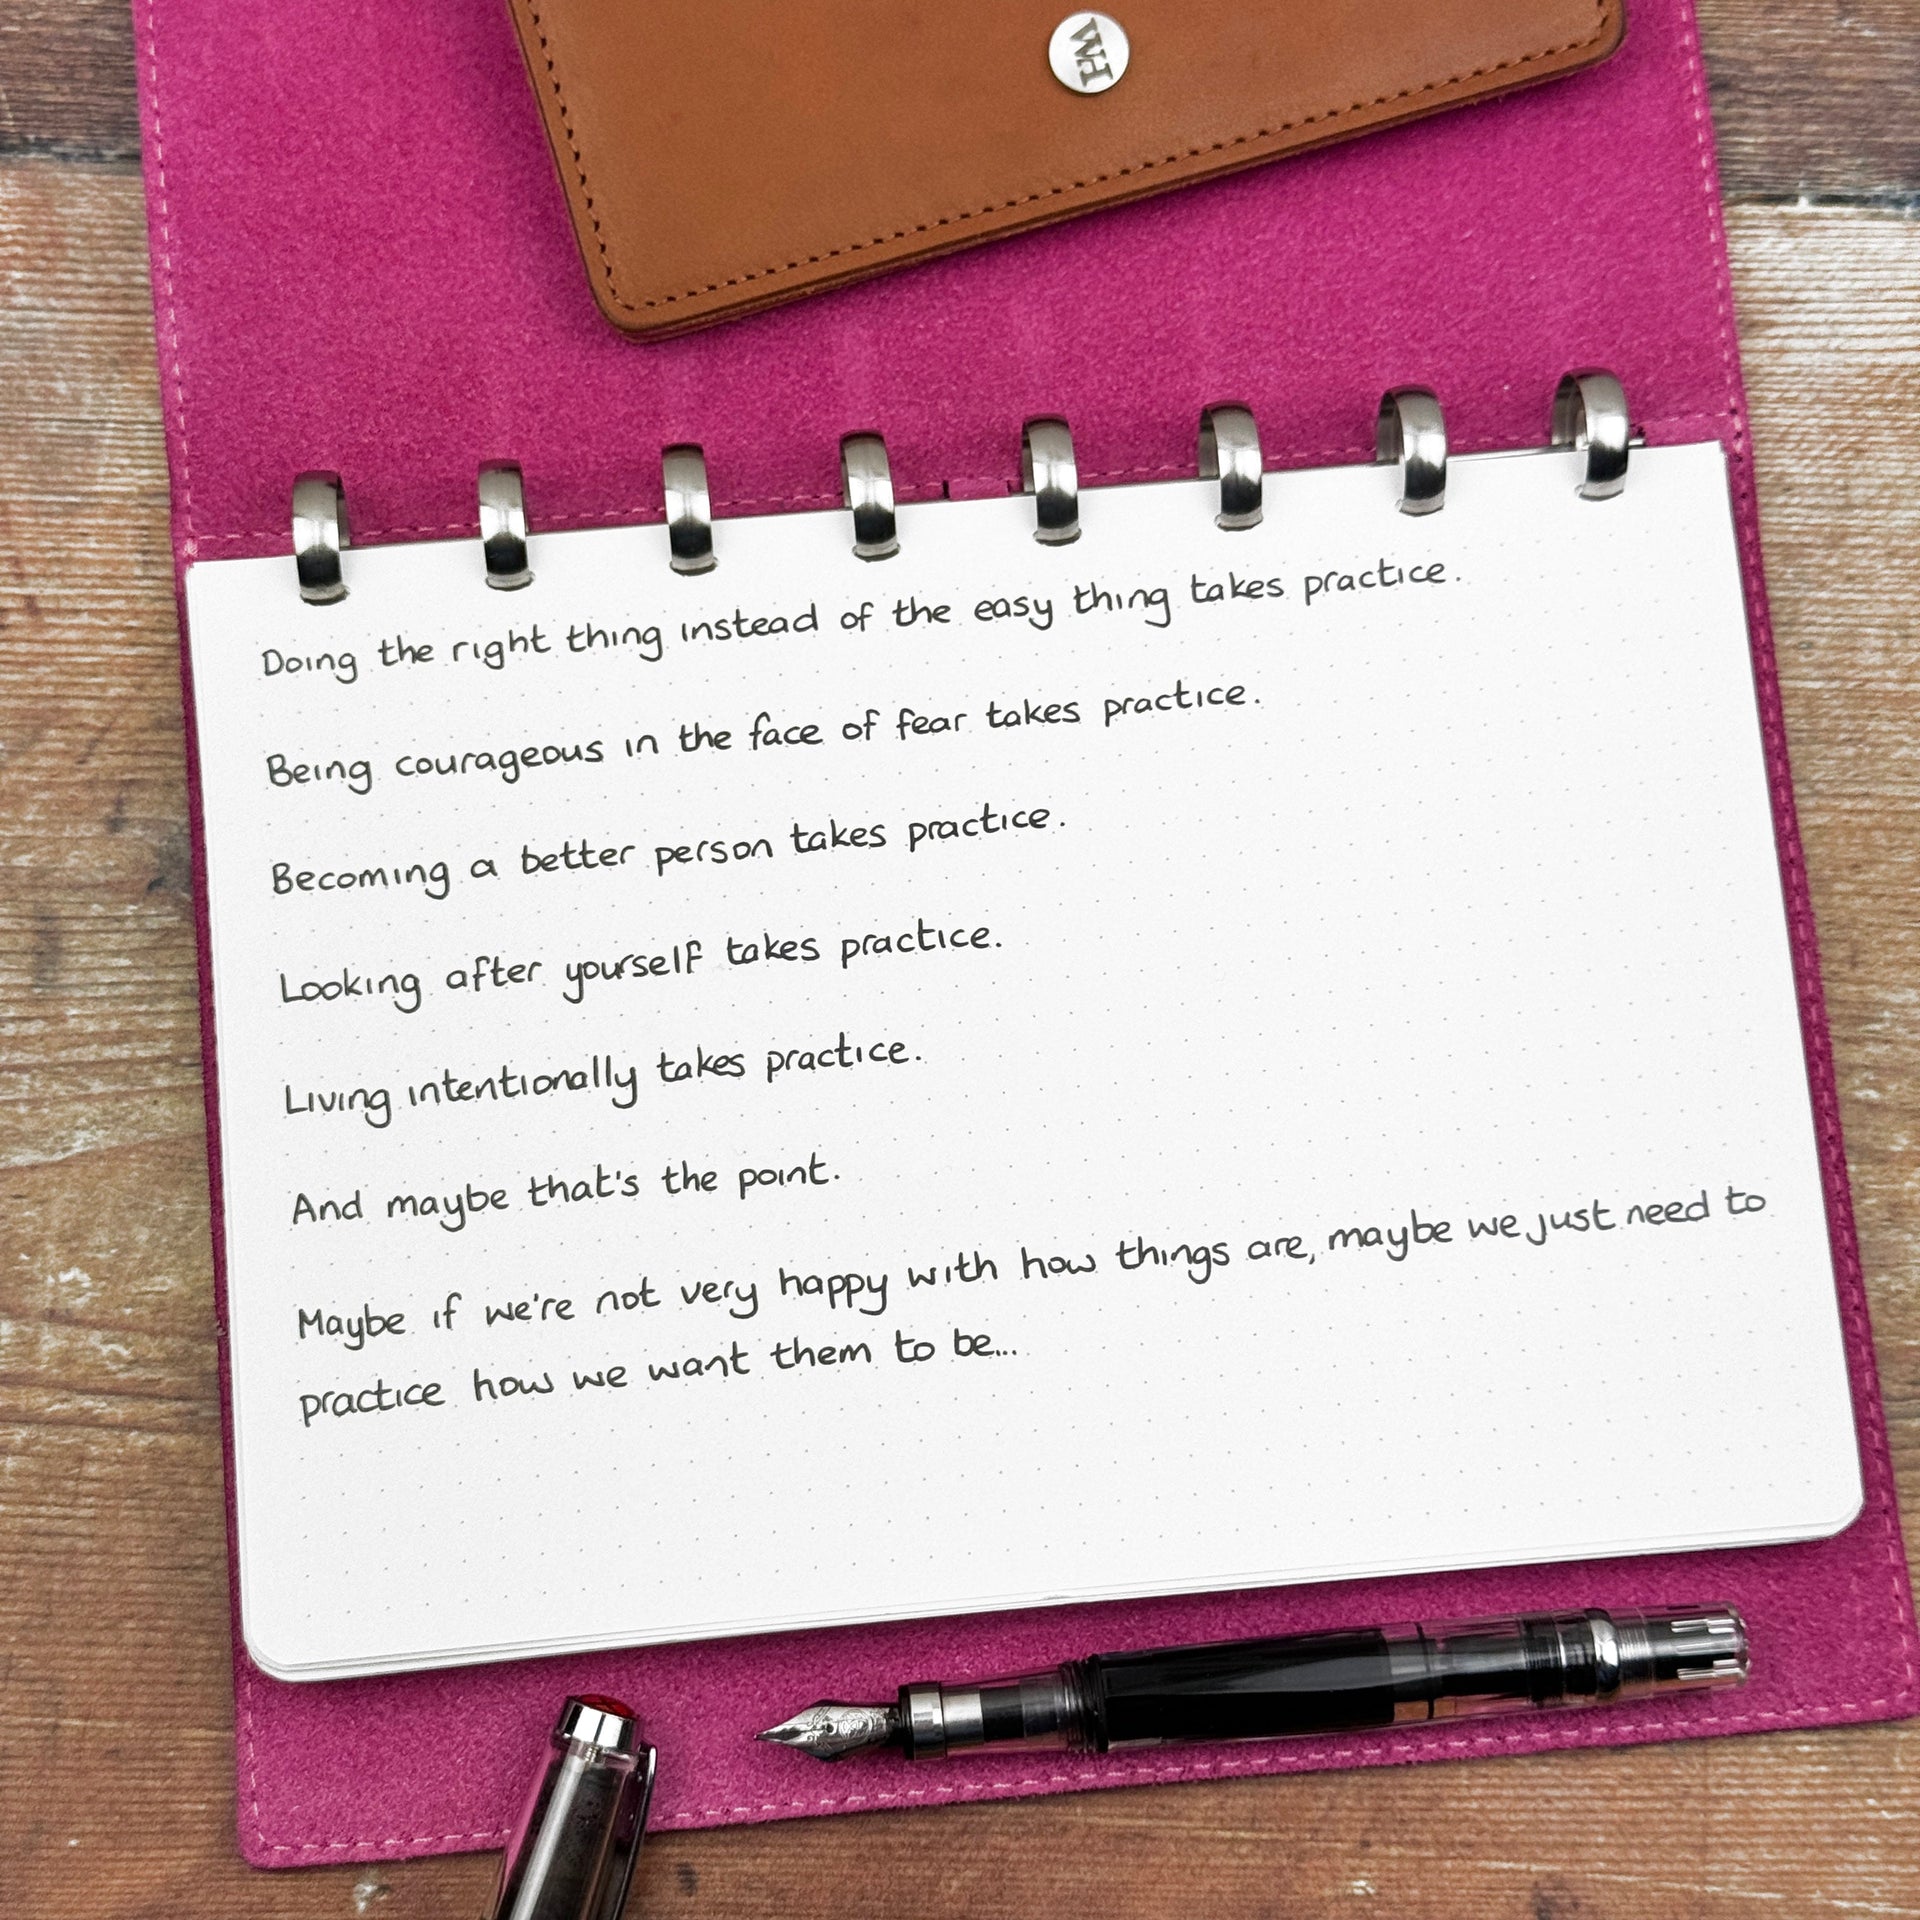 Doing the right thing instead of the easy thing takes practice.
Being courageous in the face of fear takes practice.
Becoming a better person takes practice.
Looking after yourself takes practice.
Living intentionally takes practice.
And maybe that's the point.
Maybe if we're not very happy with how things are, maybe we just need to
practice how we want them to be...